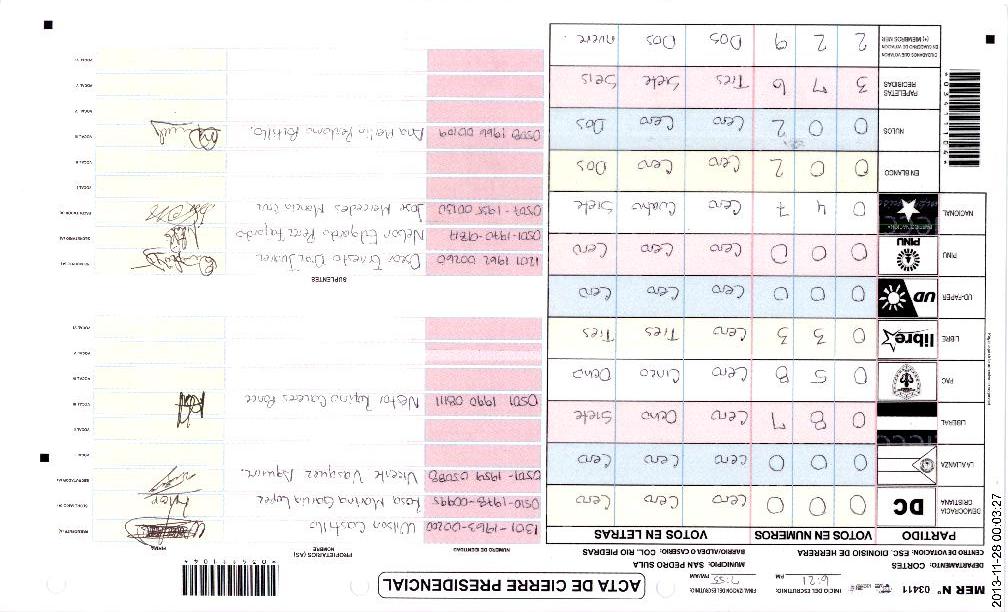 MER N° 03411
INICIO DEL ESCRUTINIO: 6:21 PM
FINALIZACION DEL ESCRUTINIO: 7:55 PM/AM
ACTA DE CIERRE PRESIDENCIAL
DEPARTAMENTO: CORTES
MUNICIPIO: SAN PEDRO SULA
CENTRO DE VOTACION: ESC. DIONISIO DE HERRERA
BARRIO/ALDEA O CASERIO: COL. RIO PIEDRAS
PARTIDO VOTOS EN NUMEROS VOTOS EN LETRAS
DEMOCRACIA CRISTIANA DC 0 0 0 Cero Cero Cero
LA ALIANZA 0 0 0 Cero Cero Cero
LIBERAL 0 8 7 Cero Ocho Siete
PAC 0 5 8 Cero Cinco Ocho
LIBRE libre 0 3 3 Cero Tres Tres
UD-FAPER UD 0 0 0 Cero Cero Cero
PINU PINU 0 0 0 Cero Cero Cero
NACIONAL 0 4 7 Cero Cuatro Siete
EN BLANCO 0 0 2 Cero Cero Dos
NULOS 0 0 2 Cero Cero Dos
PAPELETAS RECIBIDAS 3 7 6 Tres Siete Seis
CIUDADANOS QUE VOTARON EN CUADERNO DE VOTACION (+) MIEMBROS MER 2 2 9 Dos Dos nueve.
NUMERO DE IDENTIDAD PROPIETARIOS (AS) NOMBRE FIRMA
1301-1963-00200 Wilson Castillo
0510-1978-00995 Rosa Marina Garcia Lopez
0501-1959-05088 Vicente Vasquez Aguilar.
0501 1990 08111 Nestor Rufino Caceres Ponce
SUPLENTES
1201 1962 00260 Oscar Ernesto
0501-1990-01817 Nelson Edgardo Perez Fajardo
0507-1955 00130 Jose Mercedes Mancia Cruz
0508 1966 00109 Ana Merlin Perdomo Portillo.
2013-11-28 00:03:27